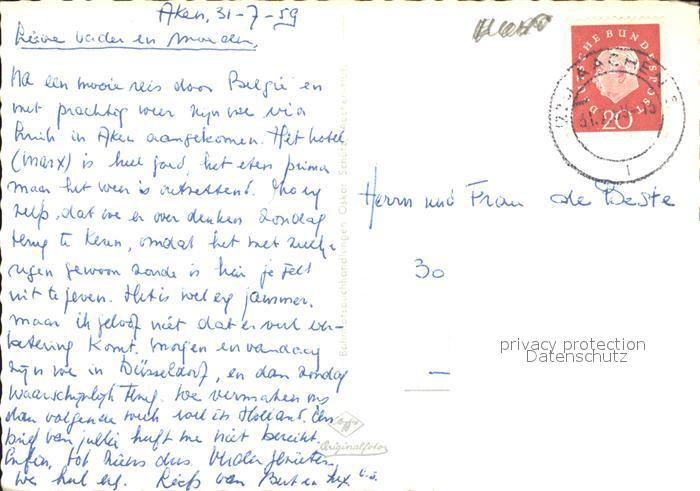 Aken, 31-7-59
Lieve vader en moeder,
Na een mooie reis door België en
met prachtig weer zijn we via
in Aken aangekomen. Het hotel
(Marx) is heel goed, het eten prima
maar het weer is ontzettend. Zo erg
zelfs, dat we er over denken Zondag
terug te keren, omdat het met
regen gewoon zonde is hier je geld
uit te geven. Het is wel erg jammer,
maar ik geloof niet dat er veel ver-
betering komt. Morgen en vandaag
zijn we in Düsseldorf, en dan Zondag
waarschijnlijk terug. We vermaken ons
dan volgende week wel in Holland. Een
brief van jullie heeft me niet bereikt.
Enfin, tot ziens dus. Verder genieten
we heel erg. Liefs van Bert en
Herrn und Frau de Beste
30
DEUTSCHE BUNDESPOST
20
AACHEN
Originalfoto
privacy protection
Datenschutz